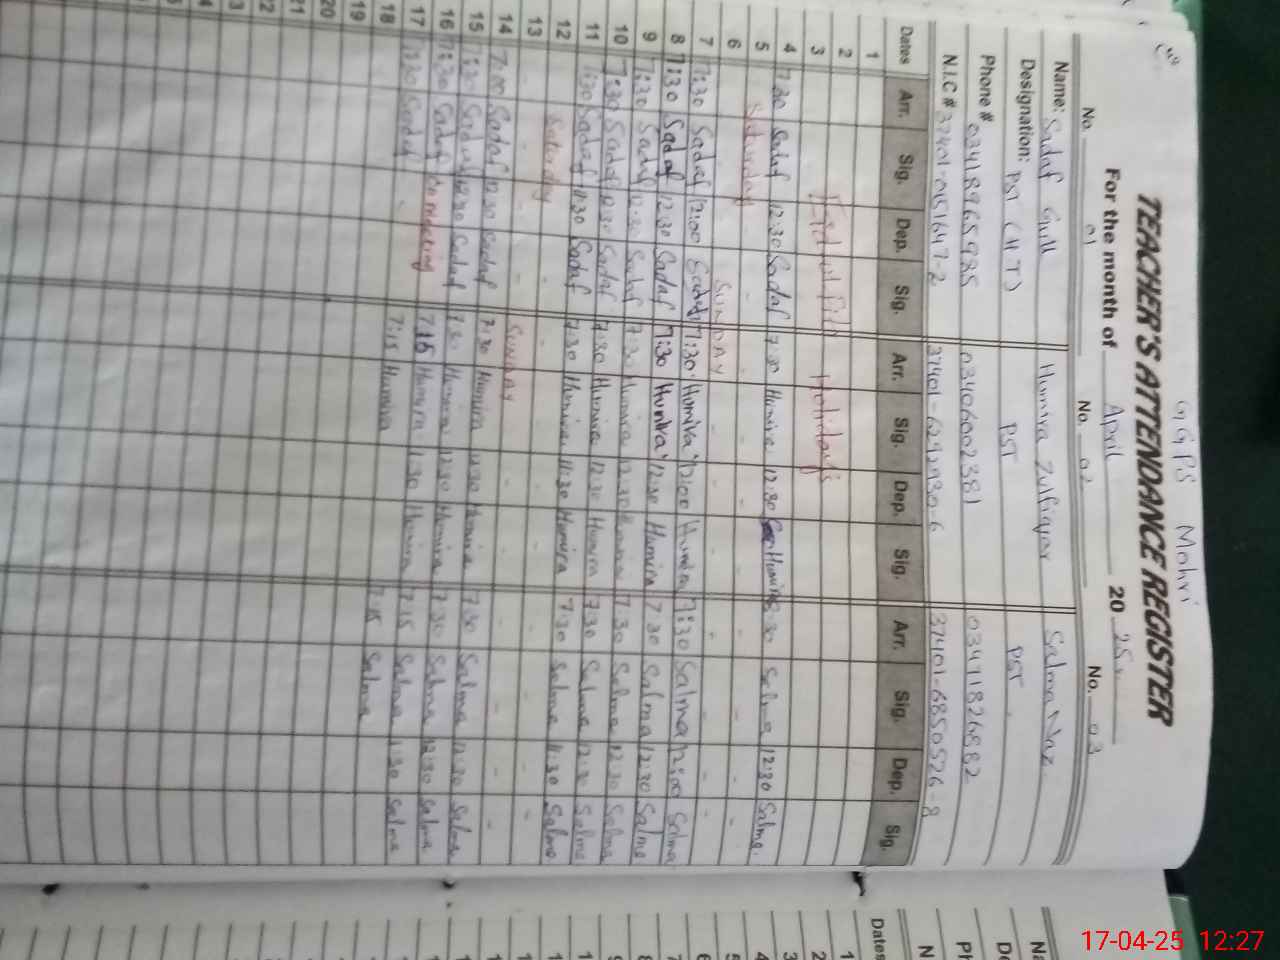 GGPS Mohri
TEACHER'S ATTENDANCE REGISTER
For the month of April 20 25
No. 01 No. 02 No. 03
Name: Sadaf Gull Humira Zulfiqar Salma Naz
Designation: PST (H.T) PST PST
Phone # 03418965985 03406002381 03471826882
N.I.C # 37401-6292930-6 37401-6850526-8
Dates Arr. Sig. Dep. Sig. Arr. Sig. Dep. Sig. Arr. Sig. Dep. Sig.
1
2 Eid ul fitr Holidays
3
4 7:30 Sadaf 12:30 Sadaf 7:30 Humira 12:30 Humira 7:30 Salma 12:30 Salma
5 Saturday
6 SUNDAY
7 7:30 Sadaf 12:00 Sadaf 7:30 Humira 12:00 Humira 7:30 Salma 12:00 Salma
8 7:30 Sadaf 12:30 Sadaf 7:30 Humira 12:30 Humira 7:30 Salma 12:30 Salma
9 7:30 Sadaf 12:30 Sadaf 7:30 Humira 12:30 Humira 7:30 Salma 12:30 Salma
10 7:30 Sadaf 12:30 Sadaf 7:30 Humira 12:30 Humira 7:30 Salma 12:30 Salma
11 7:30 Sadaf 11:30 Sadaf 7:30 Humira 11:30 Humira 7:30 Salma 11:30 Salma
12 Saturday
13 SUNDAY
14 7:00 Sadaf 12:30 Sadaf 7:30 Humira 12:30 Humira 7:30 Salma 12:30 Salma
15 7:30 Sadaf 12:30 Sadaf 7:30 Humira 12:30 Humira 7:30 Salma 12:30 Salma
16 7:30 Sadaf on meeting 7:15 Humira 1:30 Humira 7:15 Salma 1:30 Salma
17 7:30 Sadaf 7:15 Humira 7:15 Salma
18
19
20
21
22
23
Dates
1
2
3
4
5
6
7
8
17-04-25 12:27